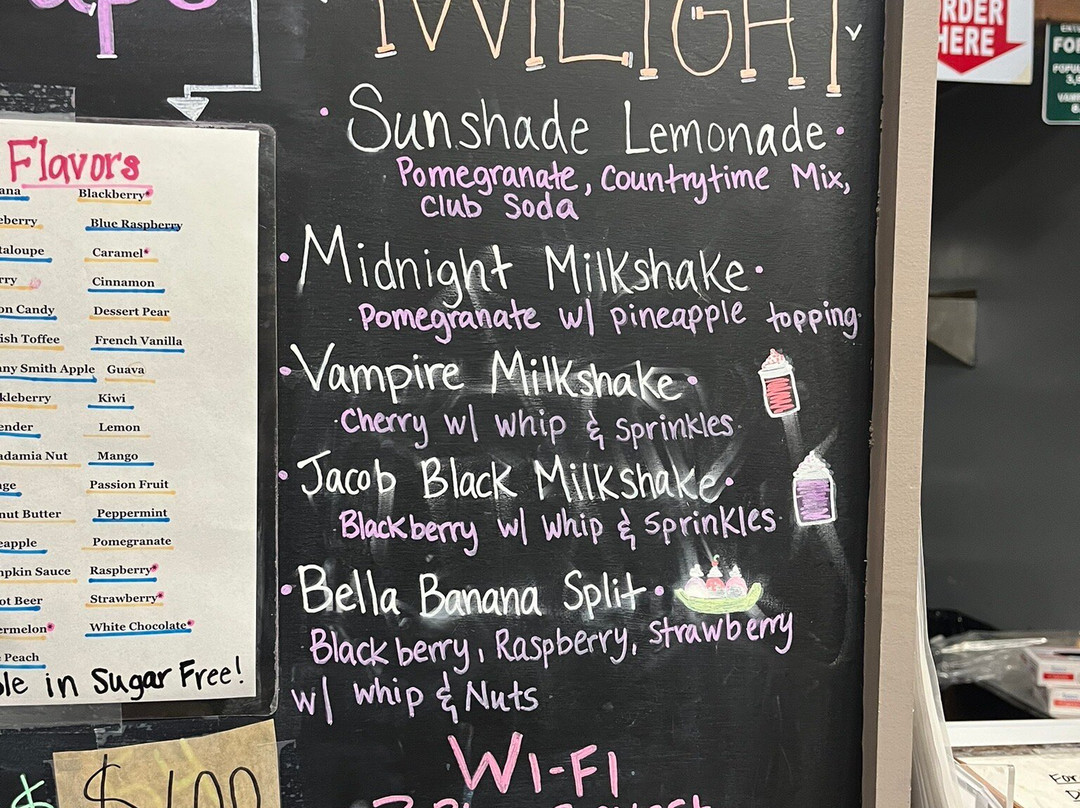 TWILIGHT
ORDER
HERE
Sunshade Lemonade
Pomegranate, Countrytime Mix,
Club Soda
Midnight Milkshake
Pomegranate w/ pineapple topping
Vampire Milkshake
Cherry w/ whip & sprinkles
Jacob Black Milkshake
Blackberry w/ whip & sprinkles
Bella Banana Split
Blackberry, Raspberry, strawberry
w/ whip & Nuts
WI-FI
Flavors
Blackberry*
Blue Raspberry
Caramel*
Cinnamon
on Candy Dessert Pear
ish Toffee French Vanilla
ny Smith Apple Guava
kleberry Kiwi
ender Lemon
adamia Nut Mango
Passion Fruit
nut Butter Peppermint
eapple Pomegranate
mpkin Sauce Raspberry*
ot Beer Strawberry*
ermelon* White Chocolate*
Peach
le in Sugar Free!
$100